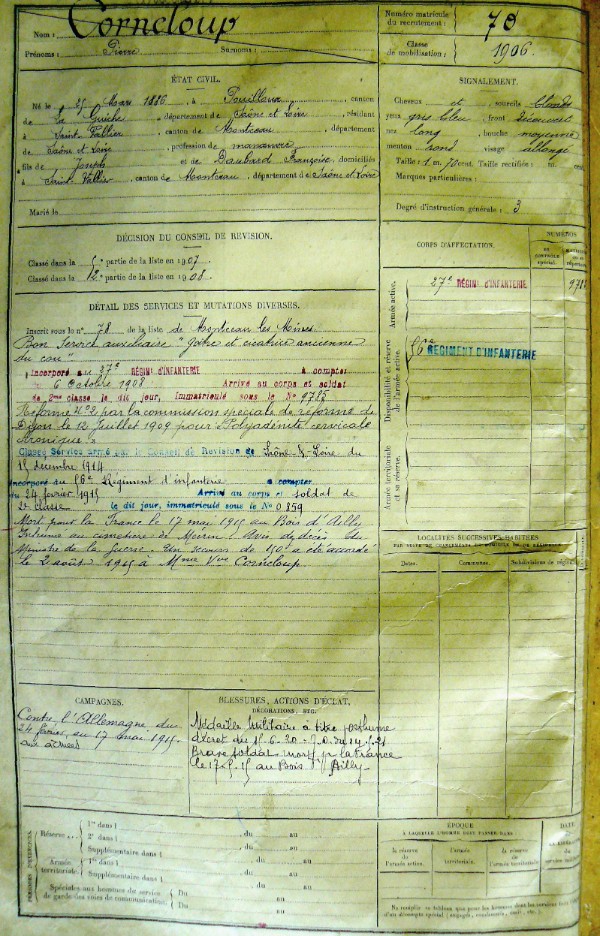 Nom : Corneloup
Prénoms : Pierre Surnoms :
Numéro matricule du recrutement : 78
Classe de mobilisation : 1906
ÉTAT CIVIL.
Né le 25 Mars 1886, à Pouilloux, canton
de La Guiche, département de Saône et Loire, résidant
à Saint Vallier, canton de Montceau, département
de Saône et Loire, profession de manœuvre
fils de Joseph et de Baubard Françoise, domiciliés
à Saint Vallier, canton de Montceau, département de Saône et Loire
Marié le
SIGNALEMENT.
Cheveux et sourcils blonds
yeux gris bleu, front découvert
nez long, bouche moyenne
menton rond visage allongé
Taille : 1 m. 70 cent. Taille rectifiée : m. cent.
Marques particulières :
Degré d'instruction générale : 3
DÉCISION DU CONSEIL DE RÉVISION.
Classé dans la 5e partie de la liste en 1907
Classé dans la 2e partie de la liste en 1908
CORPS D'AFFECTATION.
NUMÉROS
Armée active.
27e RÉGIMt D'INFANTERIE
Disponibilité et réserve de l'armée active.
56e REGIMENT D'INFANTERIE
Armée territoriale et sa réserve.
DÉTAIL DES SERVICES ET MUTATIONS DIVERSES.
Inscrit sous le n° 78 de la liste de Montceau les Mines
Bon Service auxiliaire "Goitre et cicatrice ancienne
du cou"
Incorporé au 27e RÉGIMt D'INFANTERIE à compter
du 6 Octobre 1908 Arrivé au corps et soldat
de 2me classe le dit jour, Immatriculé sous le No 9785
Réformé No 2 par la commission spéciale de réforme de
Dijon le 12 juillet 1909 pour "Polyadénite cervicale
chronique"
Classé Service armé par le Conseil de Revision de Saône-&-Loire du
15 décembre 1914
Incorporé au 56e Régiment d'infanterie à compter
du 24 février 1915 Arrivé au corps et soldat de
2e classe le dit jour, immatriculé sous le No 0859
Mort pour la France le 17 mai 1915 au Bois d'Ailly
Inhumé au cimetière de Mécrin. Avis de décès du
Ministre de la guerre. Un secours de 150f a été accordé
le 2 août 1915 à Mme Vve Corneloup.
LOCALITÉS SUCCESSIVES HABITÉES
Dates. Communes. Subdivisions de région
CAMPAGNES.
Contre l'Allemagne du
24 février au 17 mai 1915
aux armées
BLESSURES, ACTIONS D'ÉCLAT,
DÉCORATIONS, ETC.
Médaille Militaire à titre posthume
décret du 15-6-20
Brave soldat mort pr la France
le 17-5-15 au Bois d'Ailly
Réserve
1re dans l , du au
2e dans l , du au
Supplémentaire dans l , du au
Armée territoriale.
1re dans l , du au
Supplémentaire dans l , du au
Spéciales aux hommes du service de garde des voies de communication.
Du au
Du au
ÉPOQUE
À LAQUELLE L'HOMME DOIT PASSER DANS :
la réserve de l'armée active.
l'armée territoriale.
la réserve de l'armée territoriale.
DATE